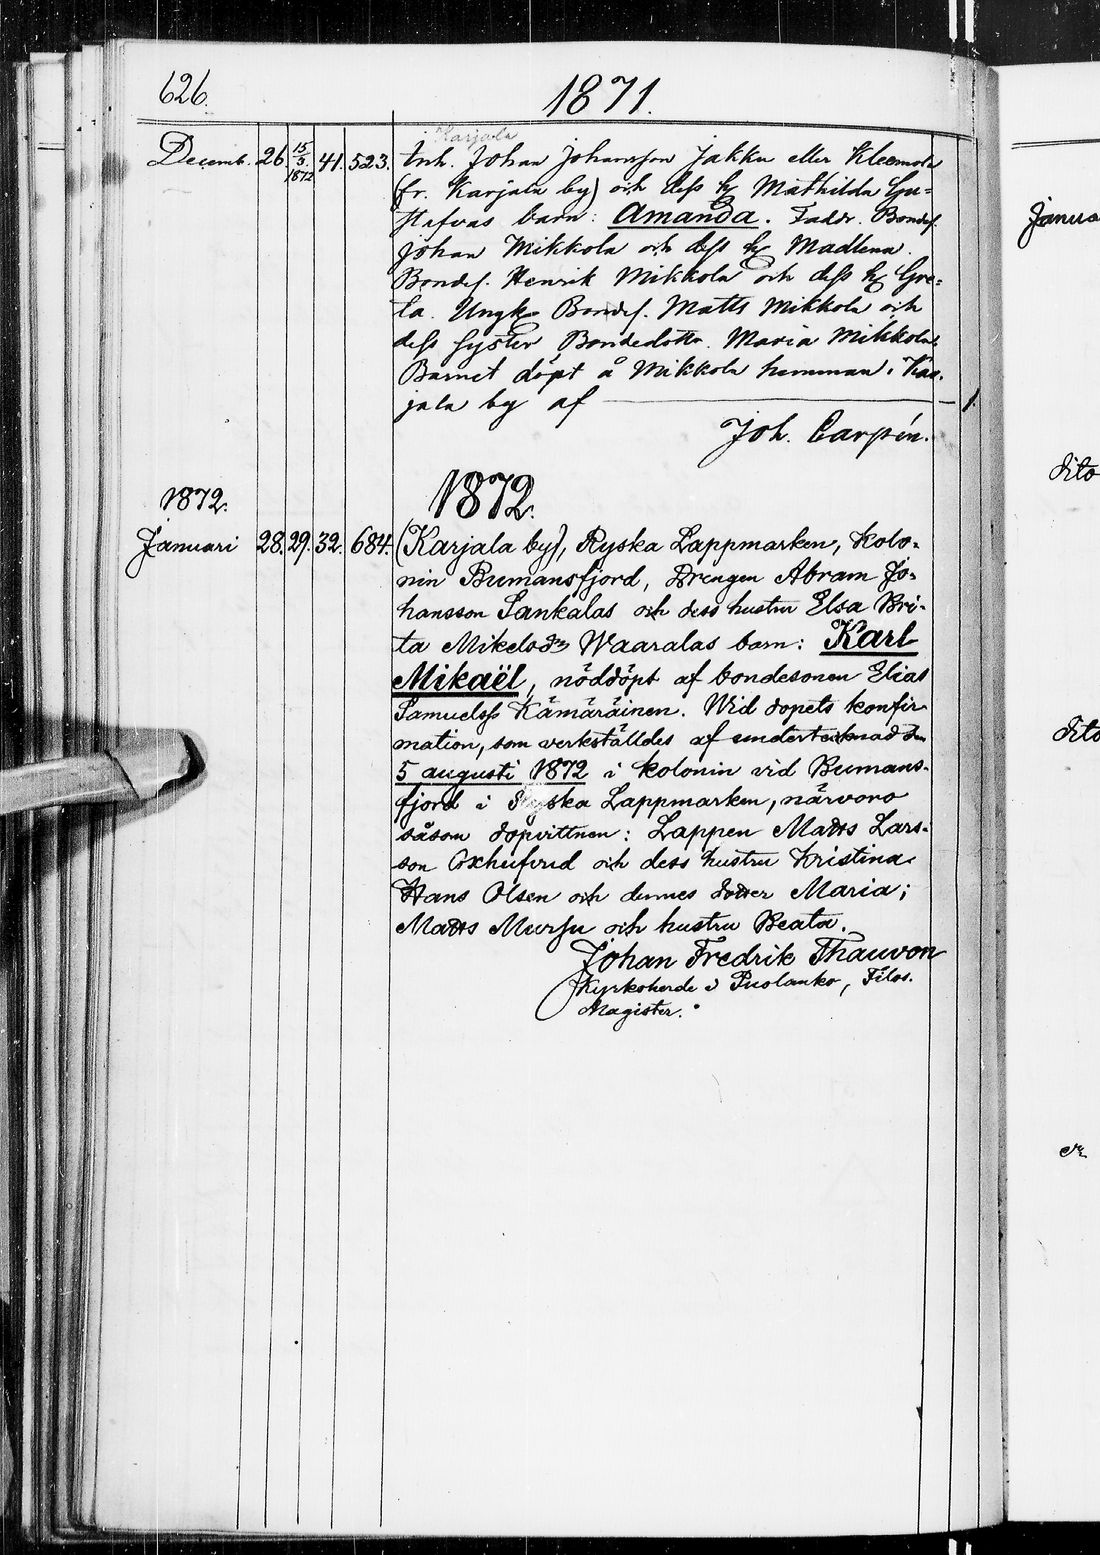 626.
1871.
Karjala
Decemb. 26. 15/5 1872 41. 523. Inh. Johan Johansson Jakku eller Kleemola
(fr. Karjala by) och dess h. Mathilda Gu=
stafvas barn: Amanda. Faddr. Bondes.
Johan Mikkola och dess h. Madlena.
Bondes. Henrik Mikkola och dess h. Gre=
ta. Ungk. Bondes. Matts Mikkola och
dess syster Bondedottr. Maria Mikkola.
Barnet döpt å Mikkola hemman i Kar=
jala by af — 1.
Joh. Carpén.
1872.
1872.
Januari 28. 29. 32. 684. (Karjala by), Ryska Lappmarken, kolo-
nin Bumansfjord, Drengen Abram Jo-
hansson Sankalas och dess hustru Elsa Bri-
ta Mikelsdr Waaralas barn: Karl
Mikaël, nöddöpt af bondesonen Elias
Samuelss Kämäräinen. Wid dopets konfir-
mation, som verkställdes af undertecknad den
5 augusti 1872 i kolonin vid Bumans-
fjord i Ryska Lappmarken, närvoro
såsom dopvittnen: Lappen Matts Lars-
son Oxhufvud och dess hustru Kristina
Hans Olsen och dennes dotter Maria;
Matts Mursu och hustru Beata.
Johan Fredrik Thauvon
Kyrkoherde i Puolanko, Filos.
Magister.
Janua
dito
dito